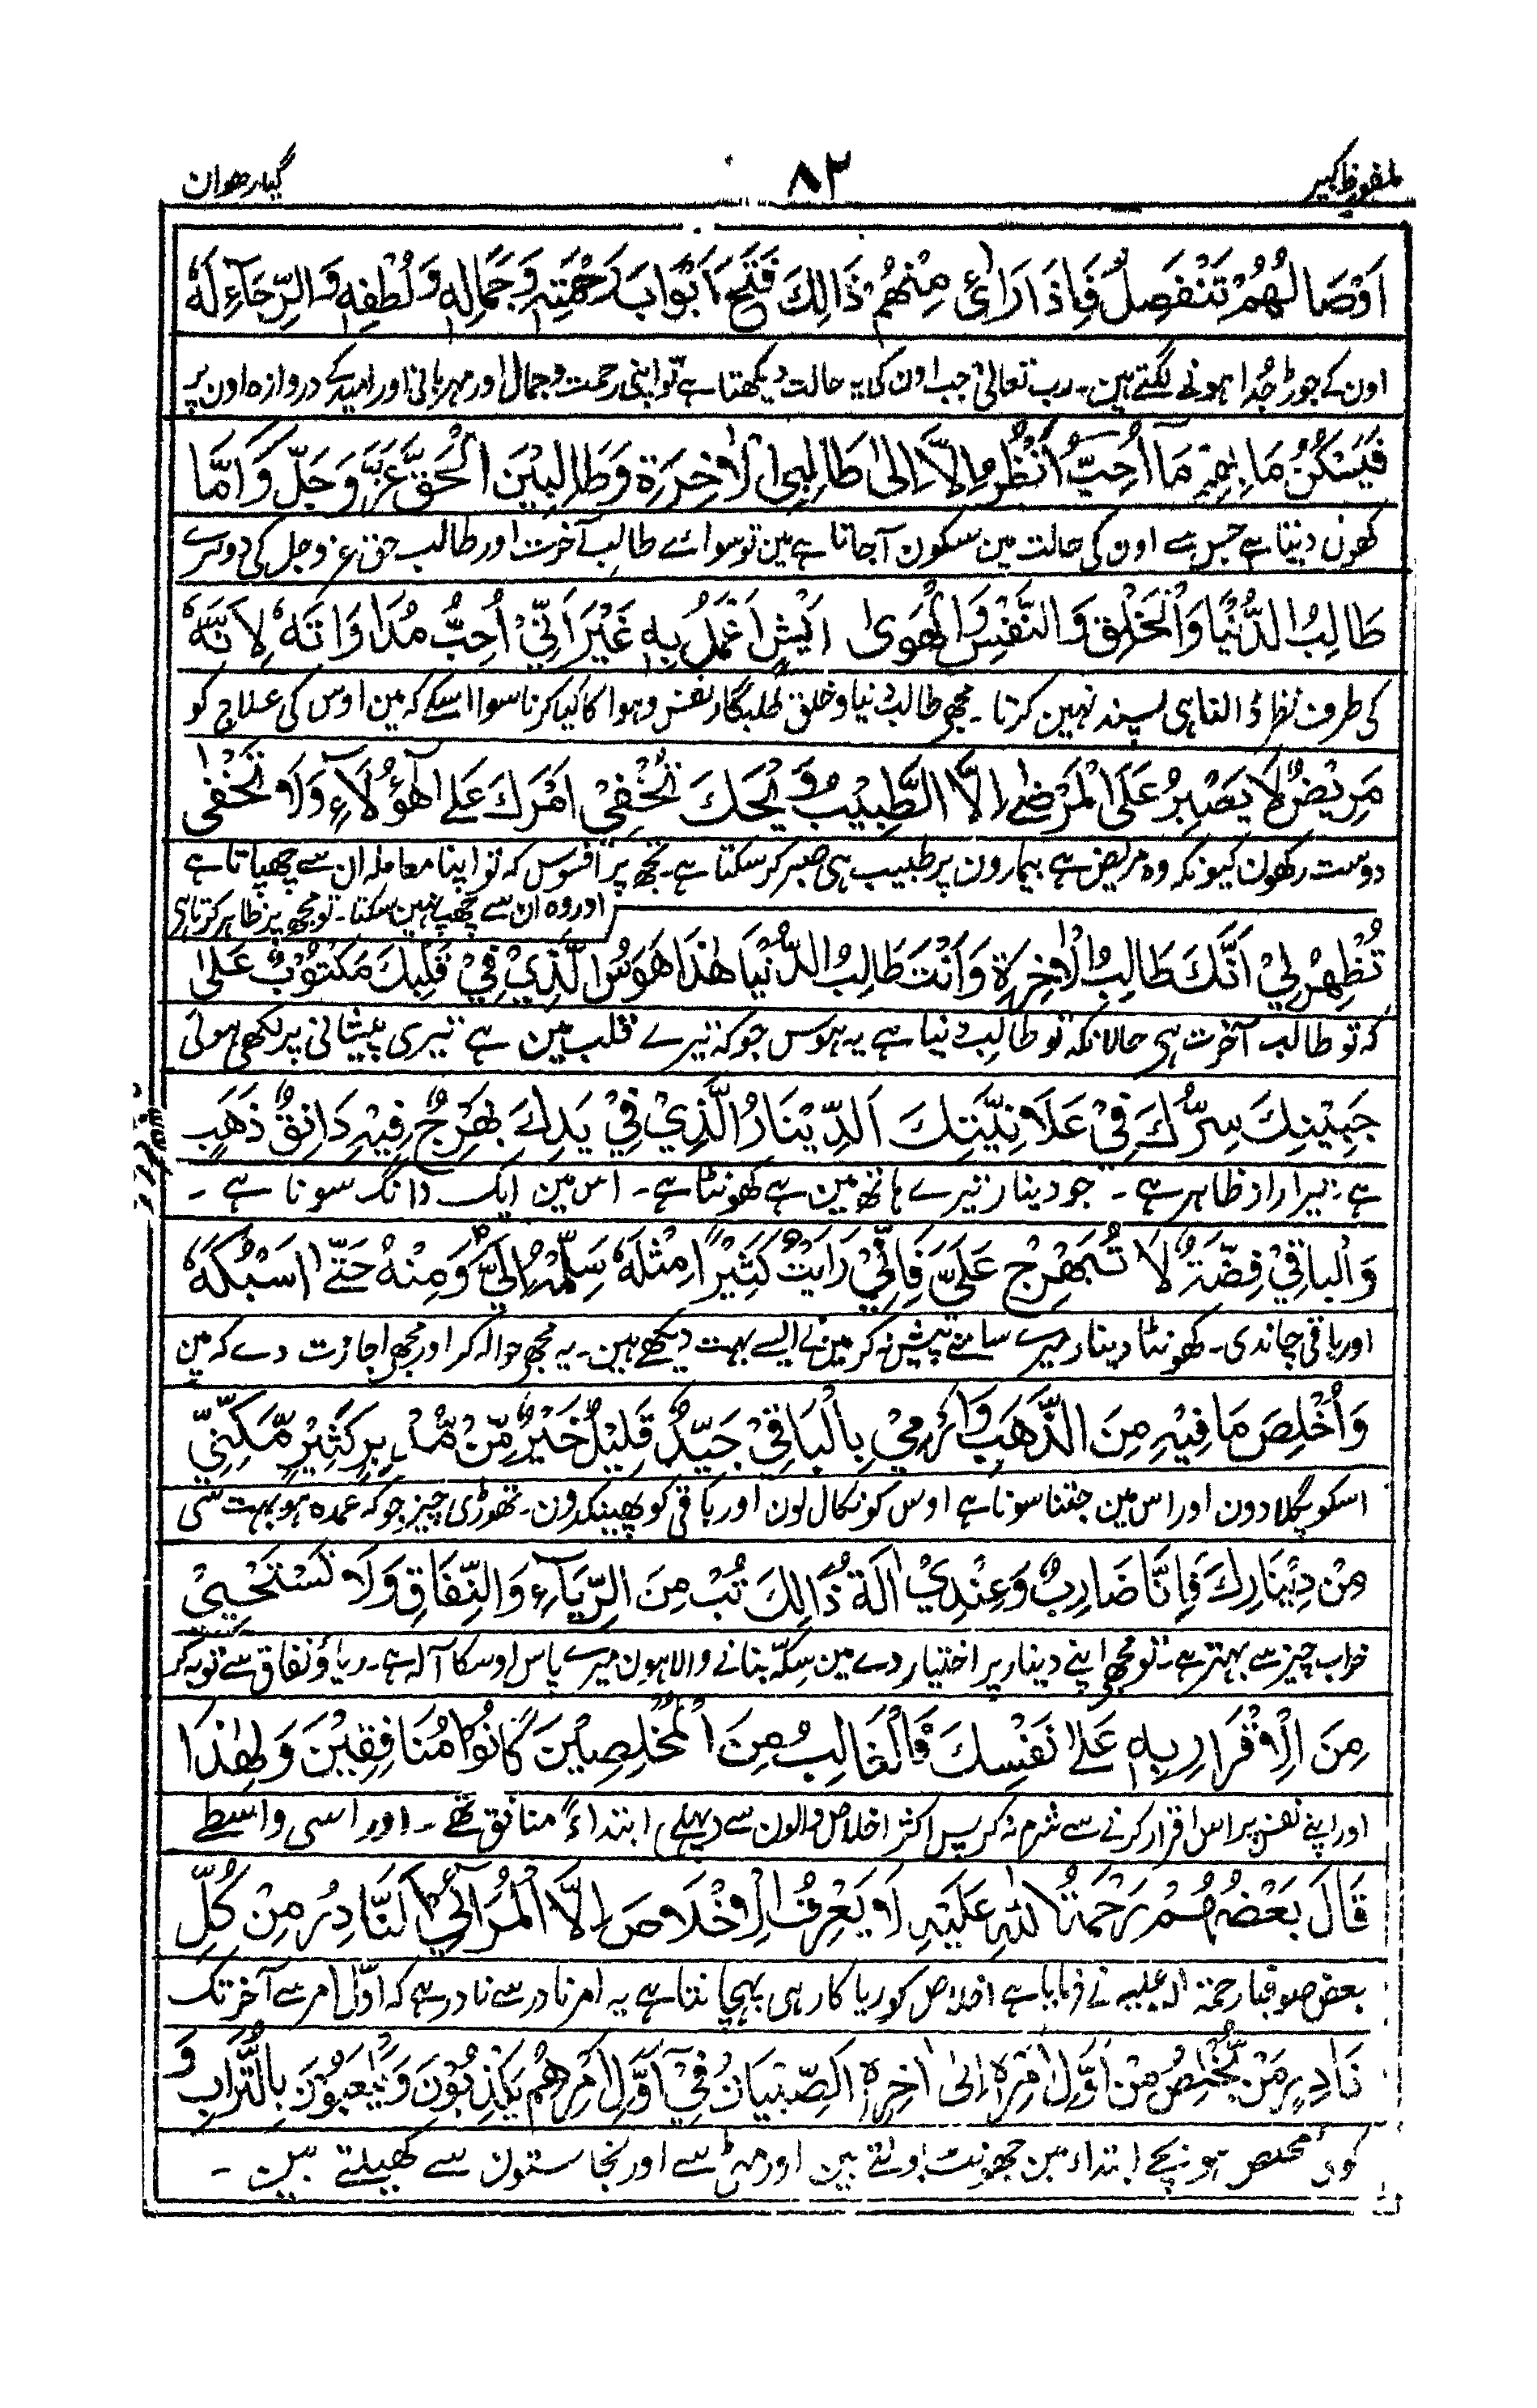 ملفوظ کبیر
۸۲
گیارھوان
اَوْصَالُهُمْ تَنْفَصِلُ فَاِذَا رَاٰئ مِنْهُمْ ذَالِكَ فَتَحَ اَبْوَابَ رَحْمَتِهٖ وَجَمَالِهٖ وَلُطْفِهٖ وَالرِّجَآءِ لَهٗ
اون کے جوڑ جُدا ہونے لگتے ہین۔ رب تعالیٰ جب اون کی یہ حالت دیکھتا ہے تو اپنی رحمت و جمال اور مہربانی اور امید کے دروازہ اون پر
فَيَسْكُنُ مَا بِهِمْ مَآ اُحِبُّ اَنْظُرُ اِلَّا اِلىٰ طَالِبِى الْاٰخِرَةِ وَطَالِبِيْنَ الْحَقِّ عَزَّ وَجَلَّ وَ اَمَّا
کھول دیتا ہے جس سے اون کی حالت مین سکون آجاتا ہے مین تو سوائے طالب آخرت اور طالب حق عز وجل کی دوسرے
طَالِبُ الدُّنْيَا وَالْخَلْقِ وَالنَّفْسِ وَالْهَوىٰ اَيْشٍ اَعْمَلُ بِهٖ غَيْرَ اَنِّيْ اُحِبُّ مُدَاوَاتَهٗ لِاَنَّهٗ
کی طرف نظر ڈالنا ہی پسند نہین کرتا۔ مجھے طالب دنیا و خلق طلبگار نفس و ہوا کا کیا کرنا سوا اسکے کہ مین اوس کی علاج کو
مَرِيْضٌ لَا يَصْبِرُ عَلَى الْمَرْضٰے اِلَّا الطَّبِيْبُ وَيْحَكَ تُخْفِيْ اَمْرَكَ عَلٰے هٰٓؤُلَآءِ وَلَا تَخْفٰى
دوست رکھون کیونکہ وہ مریض ہے بیمارون پر طبیب ہی صبر کر سکتا ہے۔ تجھ پر افسوس کہ تو اپنا معاملہ ان سے چھپاتا ہے
اور وہ ان سے چھپ نہین سکتا۔ تو مجھ پر ظاہر کرتا ہی
تُظْهِرُ لِيْ اَنَّكَ طَالِبُ الْاٰخِرَةِ وَاَنْتَ طَالِبُ الدُّنْيَا هٰذَا هَوَسُ الَّذِيْ فِيْ قَلْبِكَ مَكْتُوْبٌ عَلىٰ
کہ تو طالب آخرت ہی حالانکہ تو طالب دنیا ہے یہ ہوس جو کہ تیرے قلب مین ہے تیری پیشانی پر لکھی ہوئی
جَبِيْنِكَ سِرُّكَ فِىْ عَلَانِيَّتِكَ اَلدِّيْنَارُ الَّذِيْ فِيْ يَدِكَ بَهْرَجٌ فِيْهِ دَانِقٌ ذَهَبٍ
ہے تیرا راز ظاہر ہے۔ جو دینار تیرے ہاتھ مین ہے کھونٹا ہے۔ اس مین ایک دانگ سونا ہے۔
وَالْبَاقِيْ فِضَّةٌ لَا تُبَهْرِجْ عَلَيَّ فَاِنِّيْ رَاَيْتُ كَثِيْرًا مِثْلَهٗ سَلِّمْهُ اِلَيَّ وَمِنْهُ حَتّٰى اَسْبُكَهٗ
اور باقی چاندی۔ کھونٹا دینار میرے سامنے پیش نہ کر مین نے ایسے بہت دیکھے ہین۔ یہ مجھے حوالہ کر اور مجھے اجازت دے کہ مین
وَاُخْلِصَ مَا فِيْهِ مِنَ الذَّهَبِ وَاَرْمِيْ بِالْبَاقِيْ جَيِّدٌ قَلِيْلٌ خَيْرٌ مِّنْ كَثِيْرٍ مَكِّنِّيْ
اسکو پگلا دون اور اس مین جتنا سونا ہے اوس کو نکال لون اور باقی کو پھینکدون۔ تھوڑی چیز جو کہ عمدہ ہو بہت سی
مِنْ دِيْنَارِكَ فَاِنَّا ضَارِبٌ وَعِنْدِيْ اٰلَةُ ذَالِكَ تُبْ مِنَ الرِّيَآءِ وَالنِّفَاقِ وَلَا تَسْتَحْيِيْ
خراب چیز سے بہتر ہے۔ تو مجھے اپنے دینار پر اختیار دے مین سکّہ بنانے والا ہون میرے پاس اوسکا آلہ ہے۔ ریاؤ نفاق سے توبہ کر
مِنَ الْاِقْرَارِ بِهٖ عَلٰے نَفْسِكَ فَالْغَالِبُ مِنَ الْمُخْلِصِيْنَ كَانُوْا مُنَافِقِيْنَ وَلِهٰذَا
اور اپنے نفس پر اس اقرار کرنے سے شرم نہ کر پس اکثر اخلاص والون سے (پہلے) ابتداءً منافق تھے۔ اور اسی واسطے
قَالَ بَعْضُهُمْ رَحْمَةُ اللهِ عَلَيْهِ لَا يَعْرِفُ الْاِخْلَاصَ اِلَّا الْمُرَآئِيْ اَلنَّادِرُ مِنْ كُلِّ
بعض صوفیا رحمۃ اللہ علیہ نے فرمایا ہے اخلاص کو ریا کار ہی پہچانتا ہے یہ امر نادر سے نادر ہے کہ اوّل امر سے آخر تک
نَادِرٍ مَنْ يُّخْلِصُ مِنْ اَوَّلِ اَمْرِهٖ اِلىٰ اٰخِرِهٖ اَلصِّبْيَانُ فِيْ اَوَّلِ اَمْرِهِمْ يَكْذِبُوْنَ وَيَلْعَبُوْنَ بِالتُّرَابِ وَ
کوئی مخلص ہو بچے ابتداء مین جھونٹ بولتے ہین اور مٹی سے اور نجاستون سے کھیلتے ہین۔